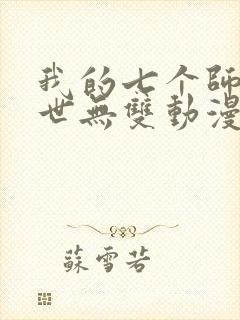 我的七个師
世無雙動漫
蘇雪若